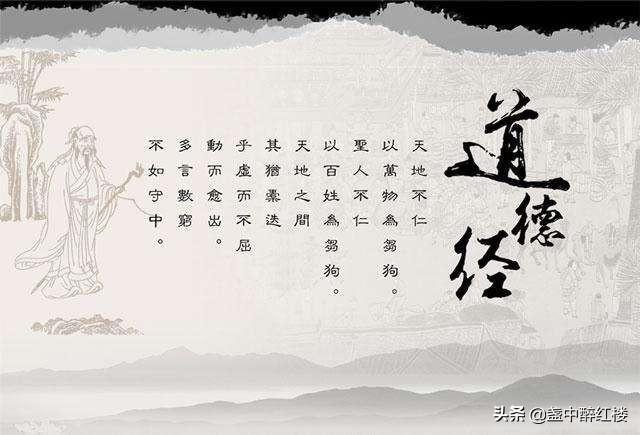 道德经
天地不仁
以萬物為芻狗。
聖人不仁
以百姓為芻狗。
天地之間
其猶橐迭
乎虛而不屈
動而愈出。
多言數窮
不如守中。
头条 @盏中醉红楼